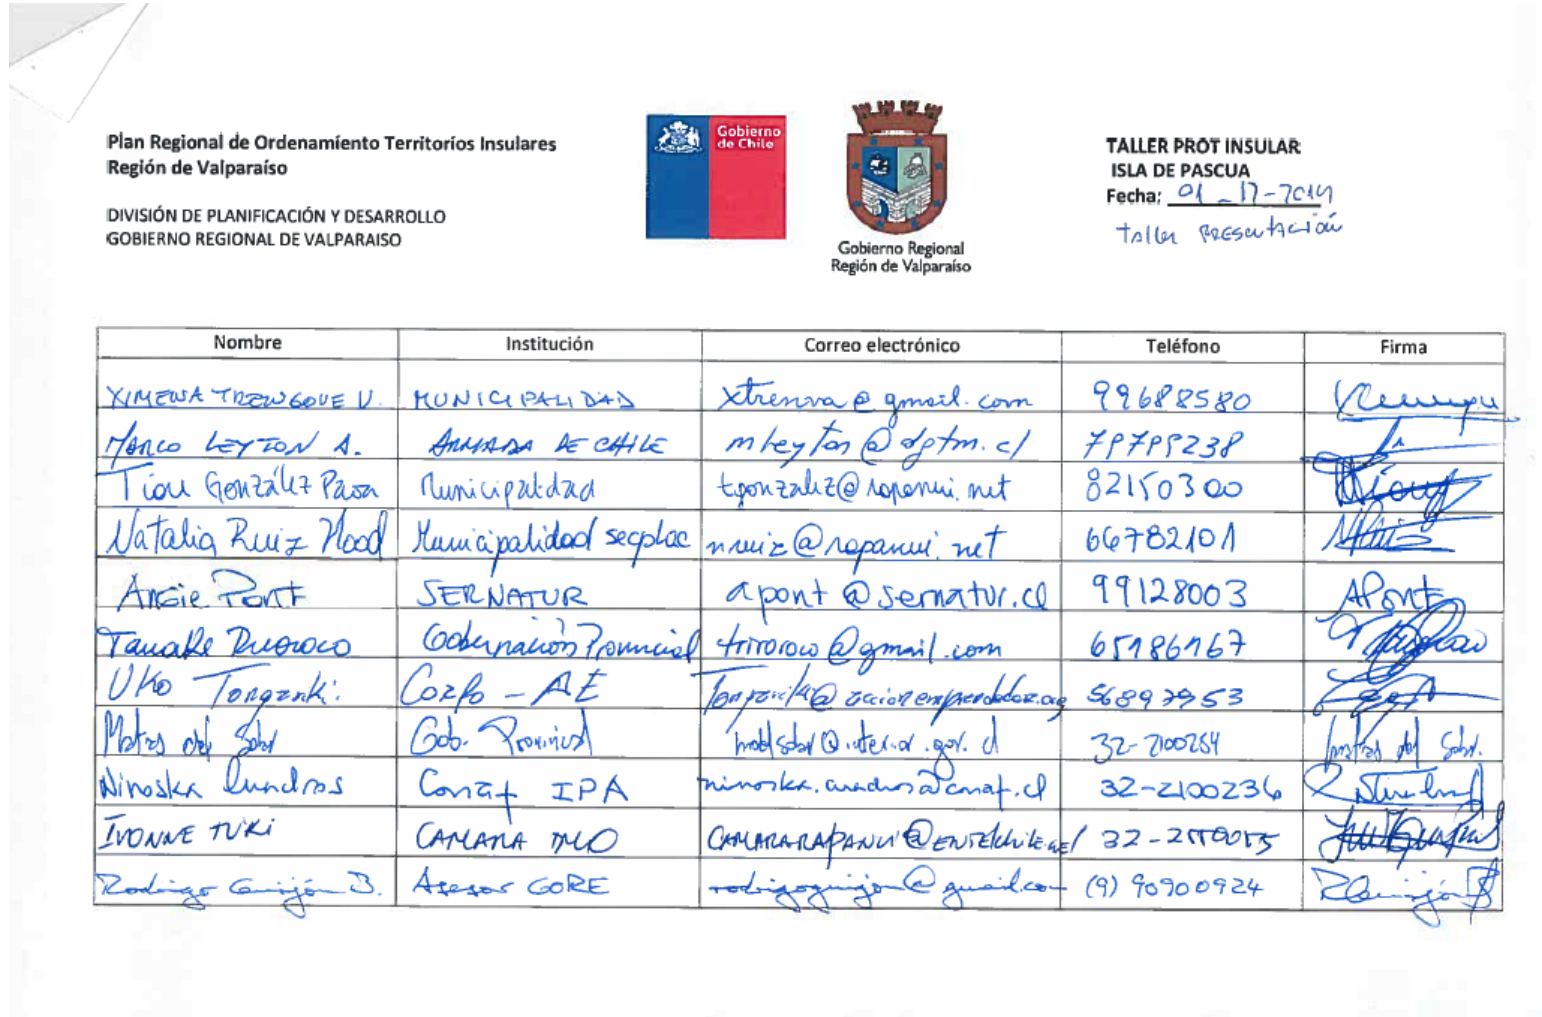 Plan Regional de Ordenamiento Territorios Insulares
Región de Valparaíso
DIVISIÓN DE PLANIFICACIÓN Y DESARROLLO
GOBIERNO REGIONAL DE VALPARAISO
Gobierno
de Chile
Gobierno Regional
Región de Valparaíso
TALLER PROT INSULAR
ISLA DE PASCUA
Fecha:
Taller Presentación
Nombre Institución Correo electrónico Teléfono Firma
XIMENA TRENGOVE V. MUNICIPALIDAD xtrenva@gmail.com 99688580
MARCO LEYTON A. ARMADA DE CHILE mleyton@dgtm.cl
Tiou González Municipalidad tgonzalez@rapanui.net 82150300
Natalia Ruiz Hood Municipalidad secplac nruiz@rapanui.net 66782101
Angie Pont SERNATUR apont@sernatur.cl 99128003 APont
Gobernación Provincial triroroco@gmail.com 65186167
Uko Tongariki. Corfo - AE 56897953
Gob. Provincial 32-2100254
Ninoska Conaf IPA 32-2100236
IVONNE TUKI CAMARA CAMARARAPANUI@ENTELchile.net
Rodrigo Guijón B. Asesor GORE rodrigoguijon@gmail.com (9) 90900924